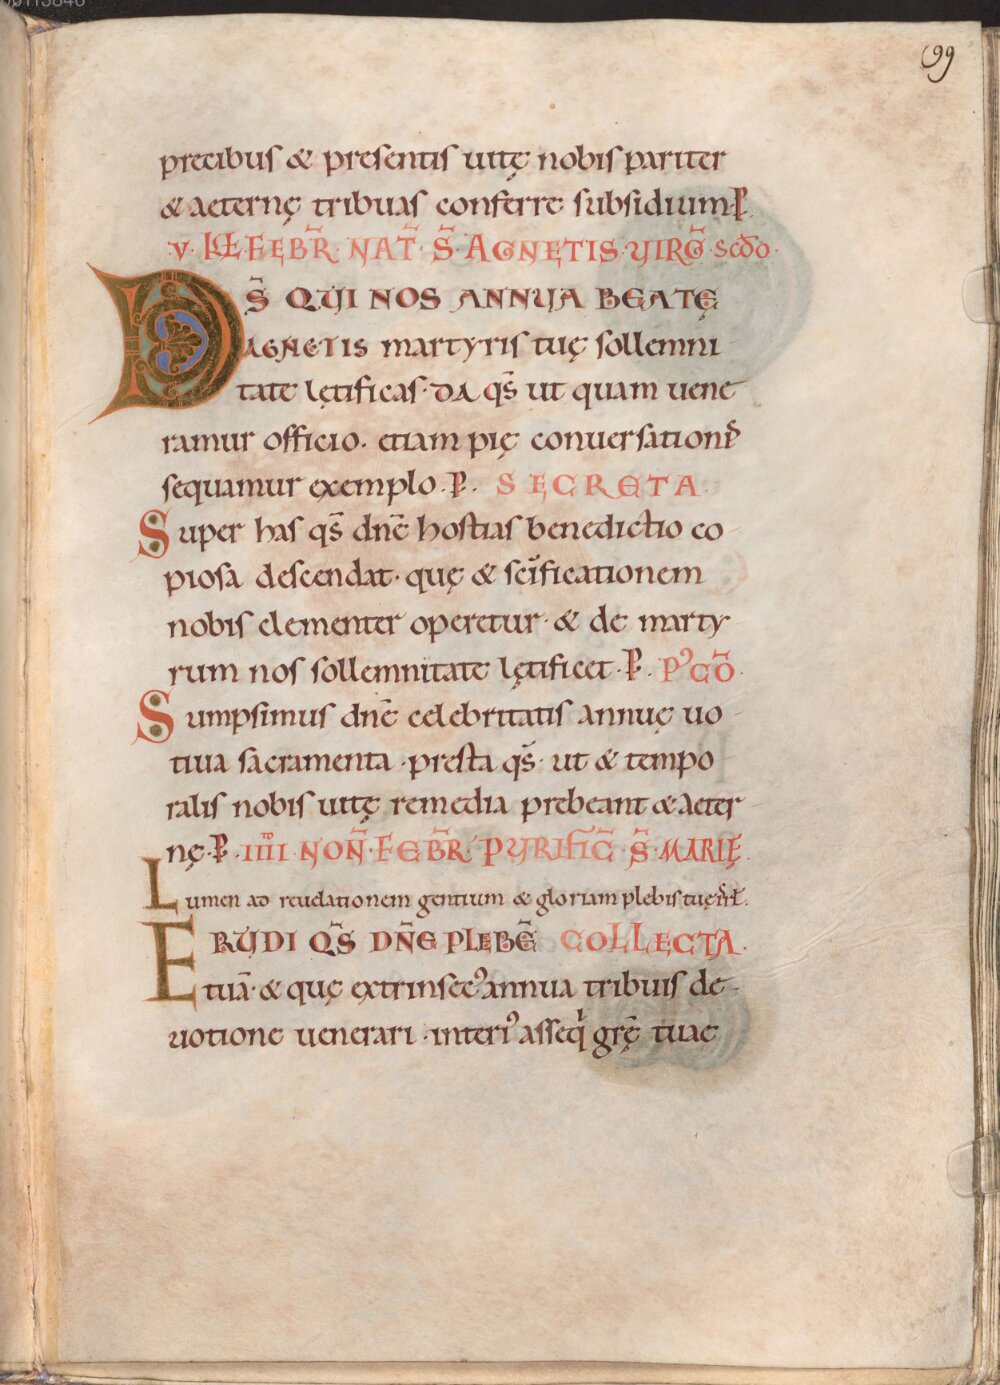 99
precibus & presentis uitę nobis pariter
& aeternę tribuas conferre subsidium. P̄.
V. KŁ FEBR̄. NAT̄. S̄. AGNETIS VIRḠ. sc̄do.
DS̄ QUI NOS ANNUA BEATĘ
AGNETIS martyris tuę sollemni
tate lętificas. DA qs̄ ut quam uene
ramur officio. etiam pię conuersationis
sequamur exemplo. P̄. SECRETA.
Super has qs̄ dnē hostias benedictio co
piosa descendat. quę & sc̄ificationem
nobis clementer operetur. & de marty
rum nos sollemnitate lętificet. P̄. P'CŌ.
Sumpsimus dnē celebritatis annuę uo
tiua sacramenta. presta qs̄. ut & tempo
ralis nobis uitę remedia prebeant & aeter
nę. P̄. IIII NOÑ. FEBR̄. PURIFIC̄. S̄. MARIĘ.
Lumen ad reuelationem gentium & gloriam plebis tuę isrł.
ERUDI QS̄ DNĒ PLEBĒ COLLECTA.
tuā. & quę extrinsec' annua tribuis de
uotione uenerari. interi' asseq̇ grę̄ tuae